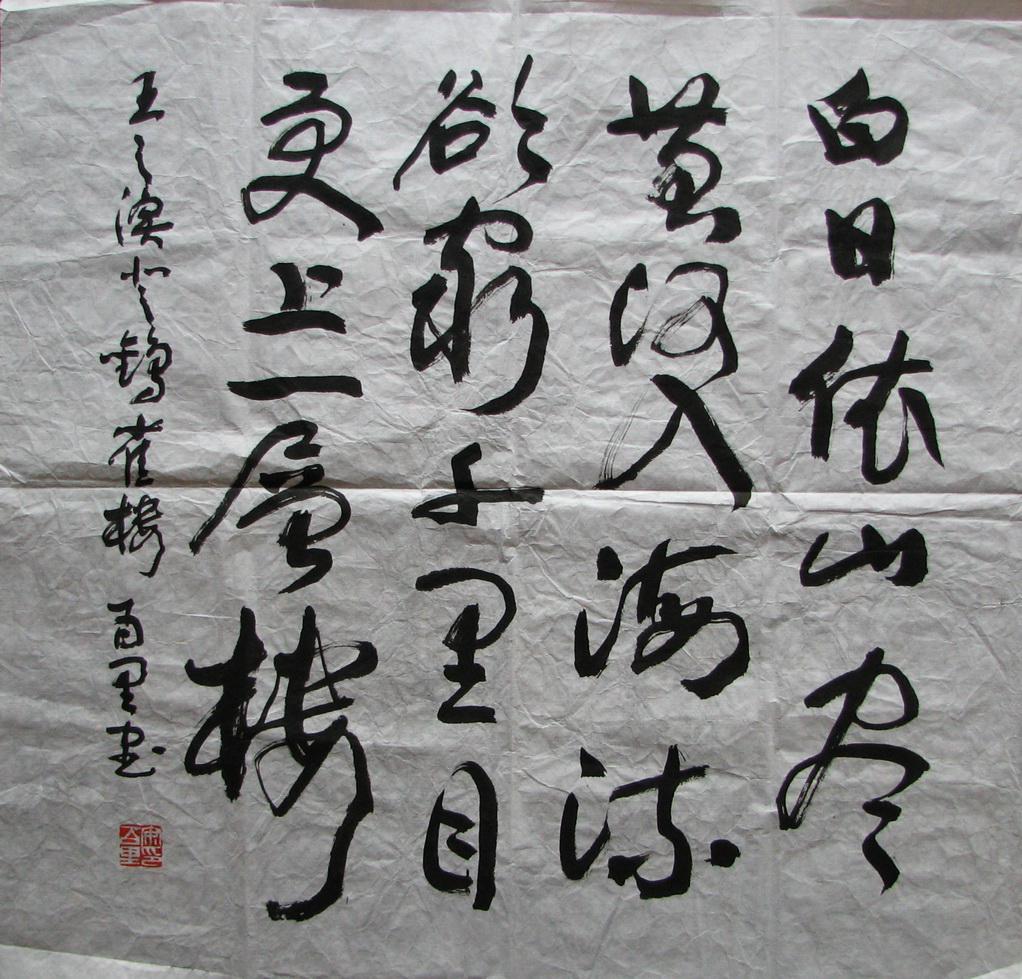 白日依山尽
黄河入海流
欲穷千里目
更上一层楼
王之涣登鹳雀楼 百里书